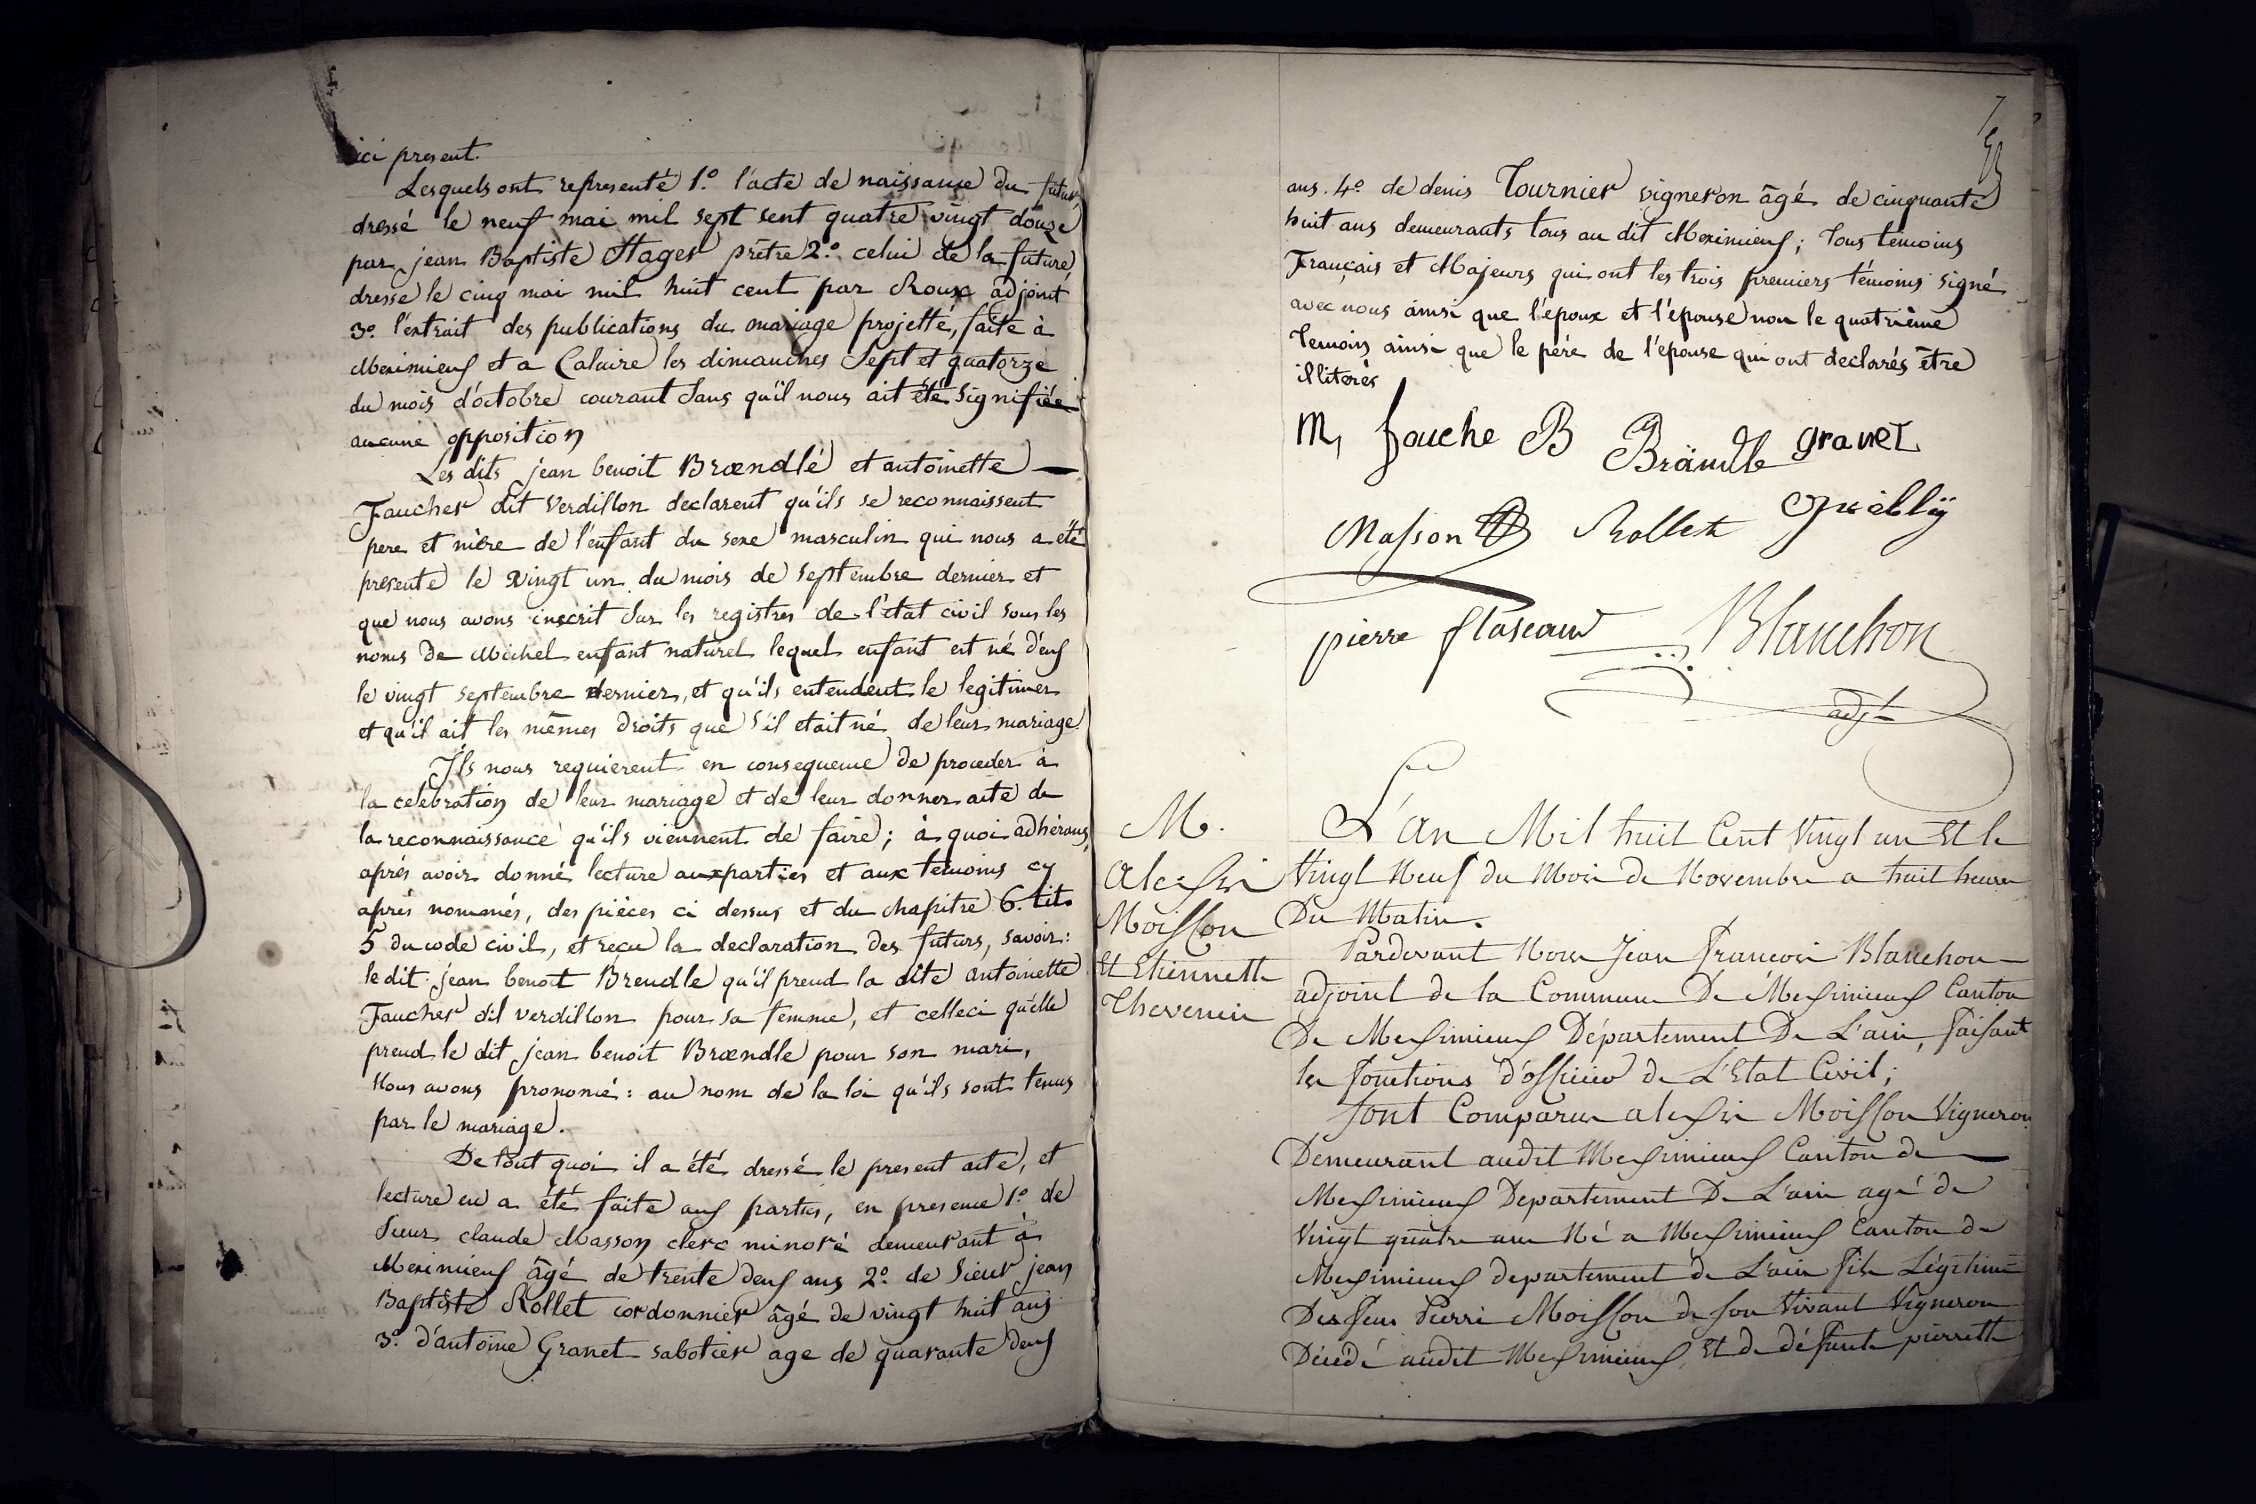 ici present.
Lesquels ont representé 1.º l'acte de naissance du futur,
dressé le neuf mai mil sept sent quatre vingt douze
par jean Baptiste Stager prêtre 2.º celui de la future
dresse le cinq mai mil huit cent par Roux adjoint
3.º l'extrait des publications du mariage projetté, faite à
Meximieux et a Caluire les dimanches Sept et quatorze
du mois d'octobre courant Sans qu'il nous ait été signifiée
aucune opposition
Les dits jean benoit Brændlé et antoinette
Faucher dit Verdillon declarent qu'ils se reconnaissent
pere et mère de l'enfant du sexe masculin qui nous a été
presenté le vingt un du mois de septembre dernier et
que nous avons inscrit sur les registres de l'état civil sous les
noms de Michel enfant naturel lequel enfant est né d'eux
le vingt septembre dernier, et qu'ils entendent le legitimer
et qu'il ait les mêmes droits que s'il etait né de leur mariage
Ils nous requierent en consequence de proceder à
la celebration de leur mariage et de leur donner acte de
la reconnaissance qu'ils viennent de faire; à quoi adhérans,
aprés avoir donné lecture aux parties et aux temoins cy
aprés nommés, des pièces ci dessus et du chapitre 6. tit.
5 du code civil, et reçu la declaration des futurs, savoir:
le dit jean benoit Brendle qu'il prend la dite antoinette
Faucher dit verdillon pour sa femme, et celleci qu'elle
prend le dit jean benoit Brændle pour son mari,
Nous avons prononcé: au nom de la loi qu'ils sont tenus
par le mariage.
De tout quoi il a été dressé le present acte, et
lecture en a été faite aux parties, en presence 1.º de
Sieur claude Masson clerc minoré demeurant à
Meximieux âgé de trente deux ans 2.º de Sieur jean
Baptiste Rollet cordonnier âgé de vingt huit ans
3.º d'antoine Granet sabotier age de quarante deux
ans. 4.º de denis Tournier vigneron âgé de cinquante
huit ans demeurants tous au dit Meximieux; tous témoins
Français et Majeurs qui ont les trois premiers témoins signé
avec nous ainsi que l'époux et l'épouse non le quatrième
Temoins ainsi que le père de l'épouse qui ont declarés être
illiterés
M, fauche B Brändle granet
Masson Rollet
pierre Blanchon
adjt
M.
Alexi
Moisson
Et Etiennette
Thevenin
L'an Mil huit Cent Vingt un Et le
Vingt Neuf du Mois de Novembre a huit heures
Du Matin.
Pardevant Nous Jean François Blanchon
adjoint de la Commune De Meximieux Canton
De Meximieux Département De L'ain, faisant
les fonctions d'officier de L'Etat Civil;
Sont Comparus alexi Moisson Vigneron
Demeurant audit Meximieux Canton de
Meximieux Departement De L'ain agé de
Vingt quatre ans Né a Meximieux Canton de
Meximieux departement de L'ain fils Légitime
Des feus Pierre Moisson de son Vivant Vigneron
Décédé audit Meximieux Et de défunte pierrette